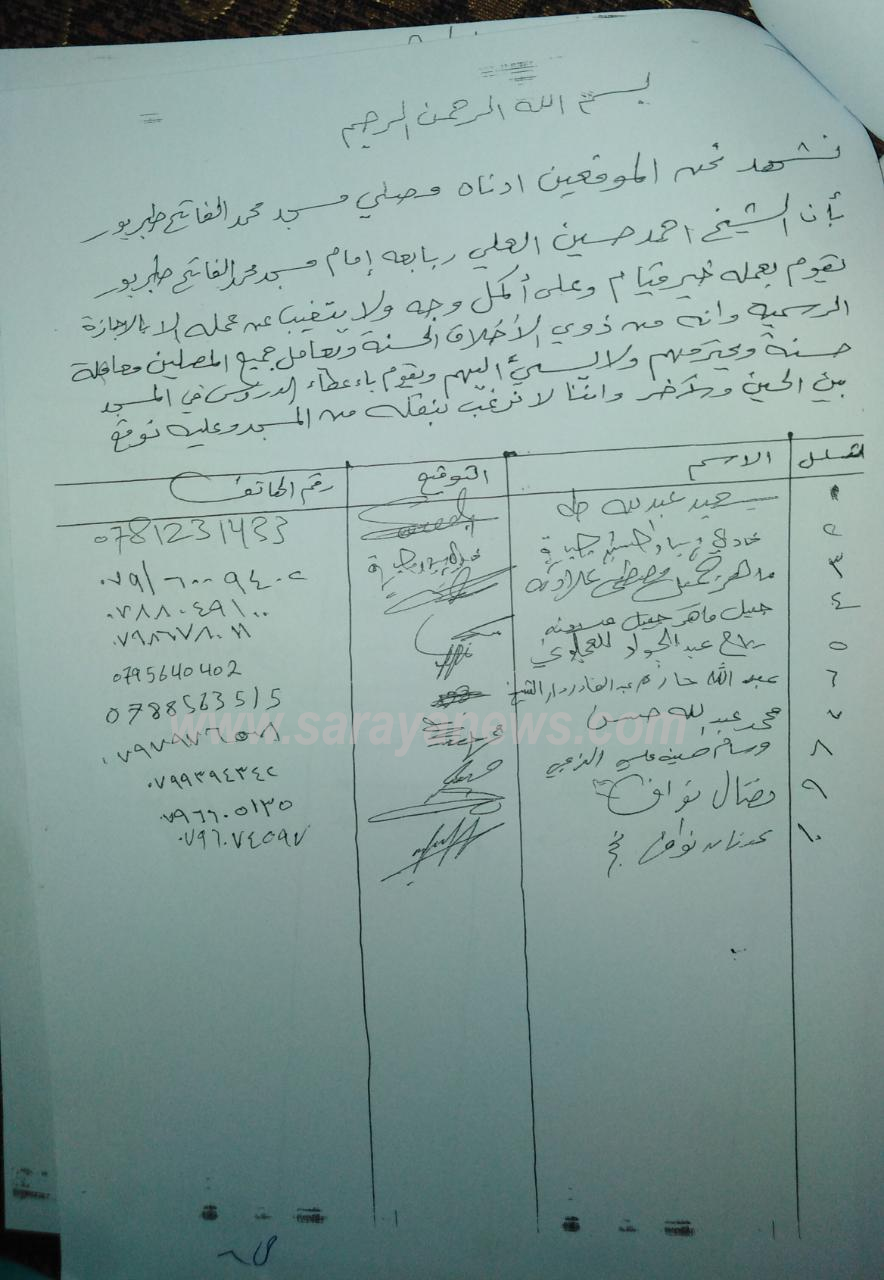 بسم الله الرحمن الرحيم
نشهد نحن الموقعين ادناه مصلي مسجد محمد الفاتح طبربور
بأن الشيخ احمد حسين العلي ربابعه إمام مسجد محمد الفاتح طبربور
يقوم بعمله خير قيام وعلى أكمل وجه ولا يتغيب عن عمله الا بالاجازة
الرسمية وانه من ذوي الأخلاق الحسنة ويعامل جميع المصلين معاملة
حسنة ويحترمهم ولا يسيئ اليهم ويقوم باعطاء الدروس في المسجد
بين الحين والآخر واننا لا نرغب بنقله من المسجد وعليه نوقع
الاسم التوقيع رقم الهاتف
١ سعيد عبد لله طه 0781231433
٢ ٠٧٩/٦٠٠٩٤٠٢
٣ ماهر جميل مصطفى ٠٧٨٨٠٤٩١٠٠
٤ جميل ماهر جميل
٥ عبد الجواد 0795640402
٦ عبد الله حازم عبد القادر دار الشيخ 0788563515
٧ محمد عبد لله حسن
٨ وسام علي الزعبي ٠٧٩٩٣٩٤٣٤٢
٩ نضال نواف ٠٧٩٦٦٠٠١٣٥
١٠ عدنان نواف ٠٧٩٦٠٧٤٥٩٧
www.sarayanews.com